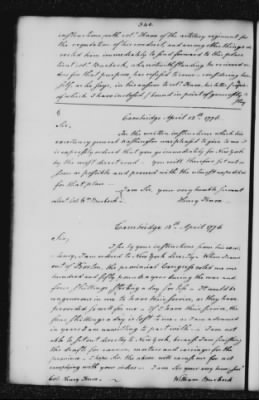 instructions with Col. Knox of the artillery regiment for
the regulation of his conduct, and among other things or
dered him immediately to find forward to this place
Lieut Col. Burbeck, who notwithstanding he received or
ders for that purpose, has refused to come, considering him
self, as he says, in his answer to Col. Knox his letter (copies
of which I have inclosed) bound in point of generosity to
stay
Cambridge April 12th 1776
Sir,
In the written instructions which his
excellency general Washington was pleased to give to me it
is expressly ordered that you go immediately for New York
by the most direct road — you will therefore set out as
soon as possible and proceed with the utmost expedition
for that place —
I am Sir your very humble servant
Lieut. Col. Wm Burbeck — Henry Knox
Cambridge 12th April 1776
Sir,
I see by your instructions from his excel
lency, I am ordered to New York directly. When I came
out of Boston, the provincial Congress voted me one
hundred and fifty pounds a year during the war and
four shillings sterling a day for life — It would be
ungenerous in me to leave their service, as they have
provided so well for me — If I leave their service, the
four shillings a day is lost to me. I am advanced
in years I am unwilling to part with — I am not
able to set out directly to New York, because I am finishing
the draft for cannon, mortars and carriages for the
province. I hope Sir the above will excuse me for not
complying with your orders — I am Sir your very hum ser
Col. Henry Knox — William Burbeck